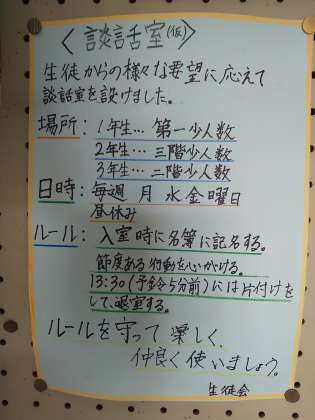 〈談話室(仮)〉
生徒からの様々な要望に応えて
談話室を設けました。
場所：1年生…第一少人数
2年生…三階少人数
3年生…二階少人数
日時：毎週 月 水 金曜日
昼休み
ルール：入室時に名簿に記名する。
節度ある行動を心がける。
13:30(予令5分前)には片付けを
して、退室する。
ルールを守って楽しく、
仲良く使いましょう。
生徒会